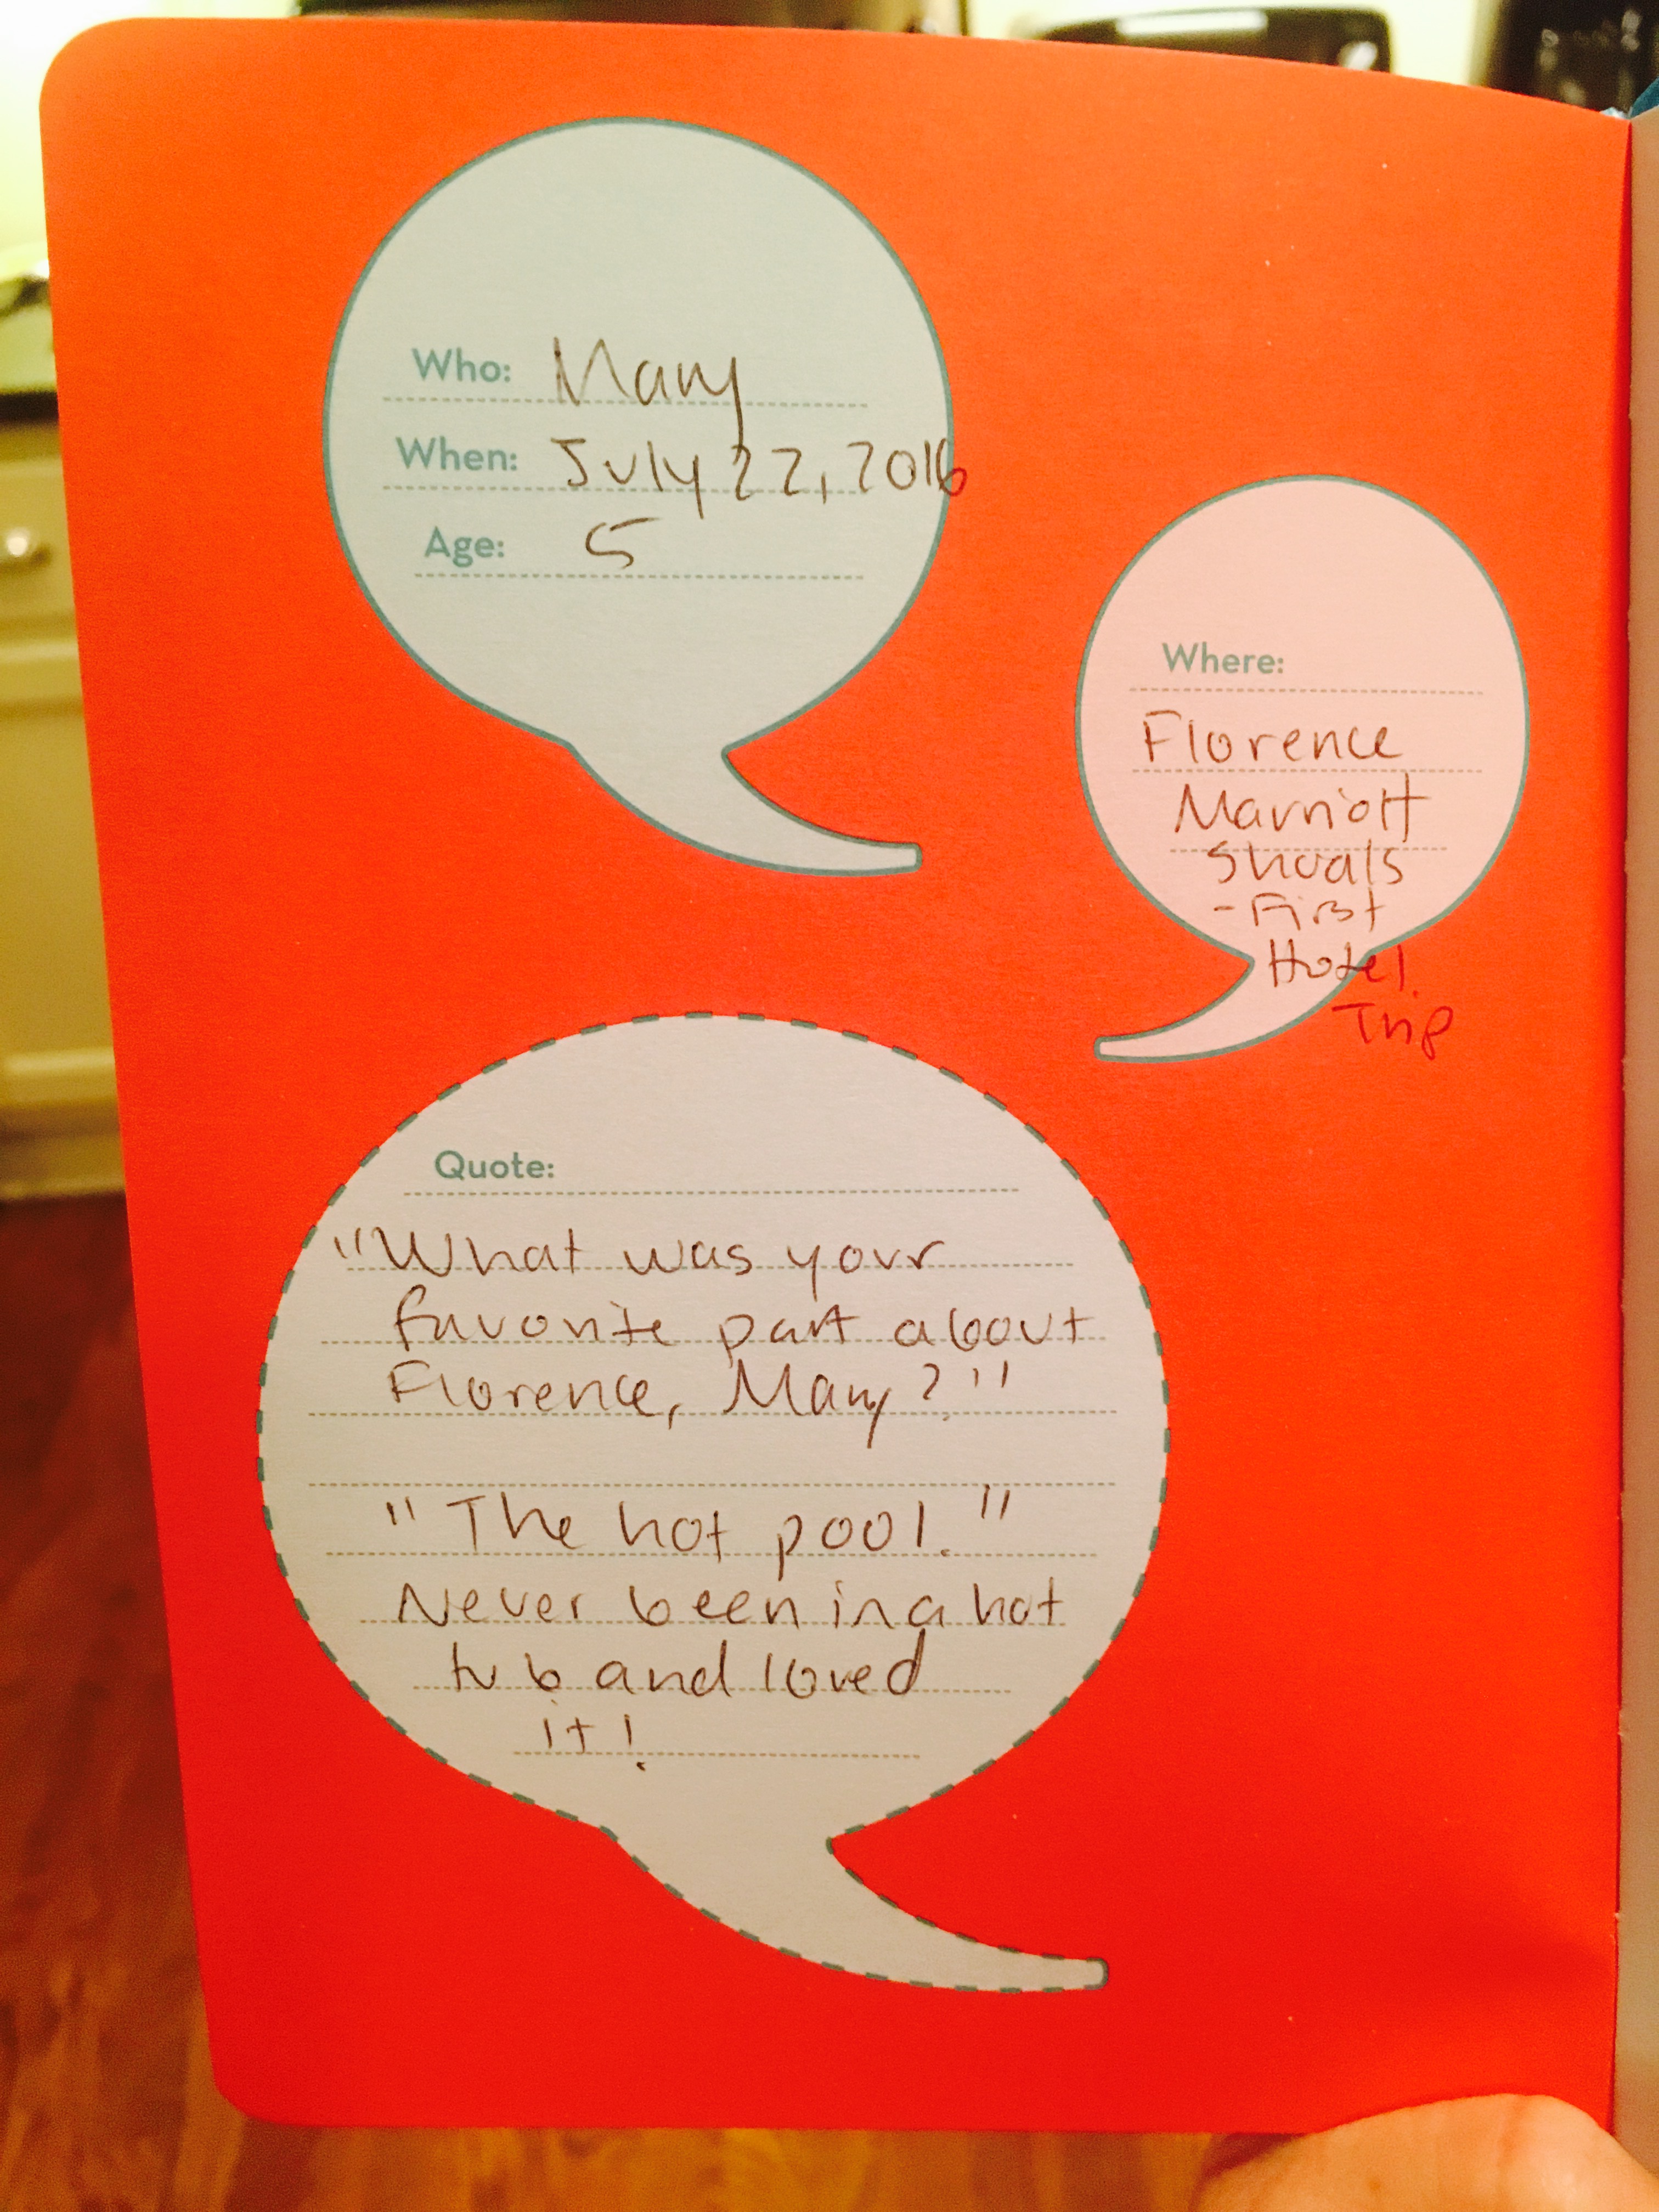 Who: Mary
When: July 22, 2016
Age: 5
Where:
Florence
Marriott
Shoals
- First
Hotel
Trip
Quote:
"What was your
favorite part about
Florence, Mary?"
"The hot pool."
Never been in a hot
tub and loved
it!